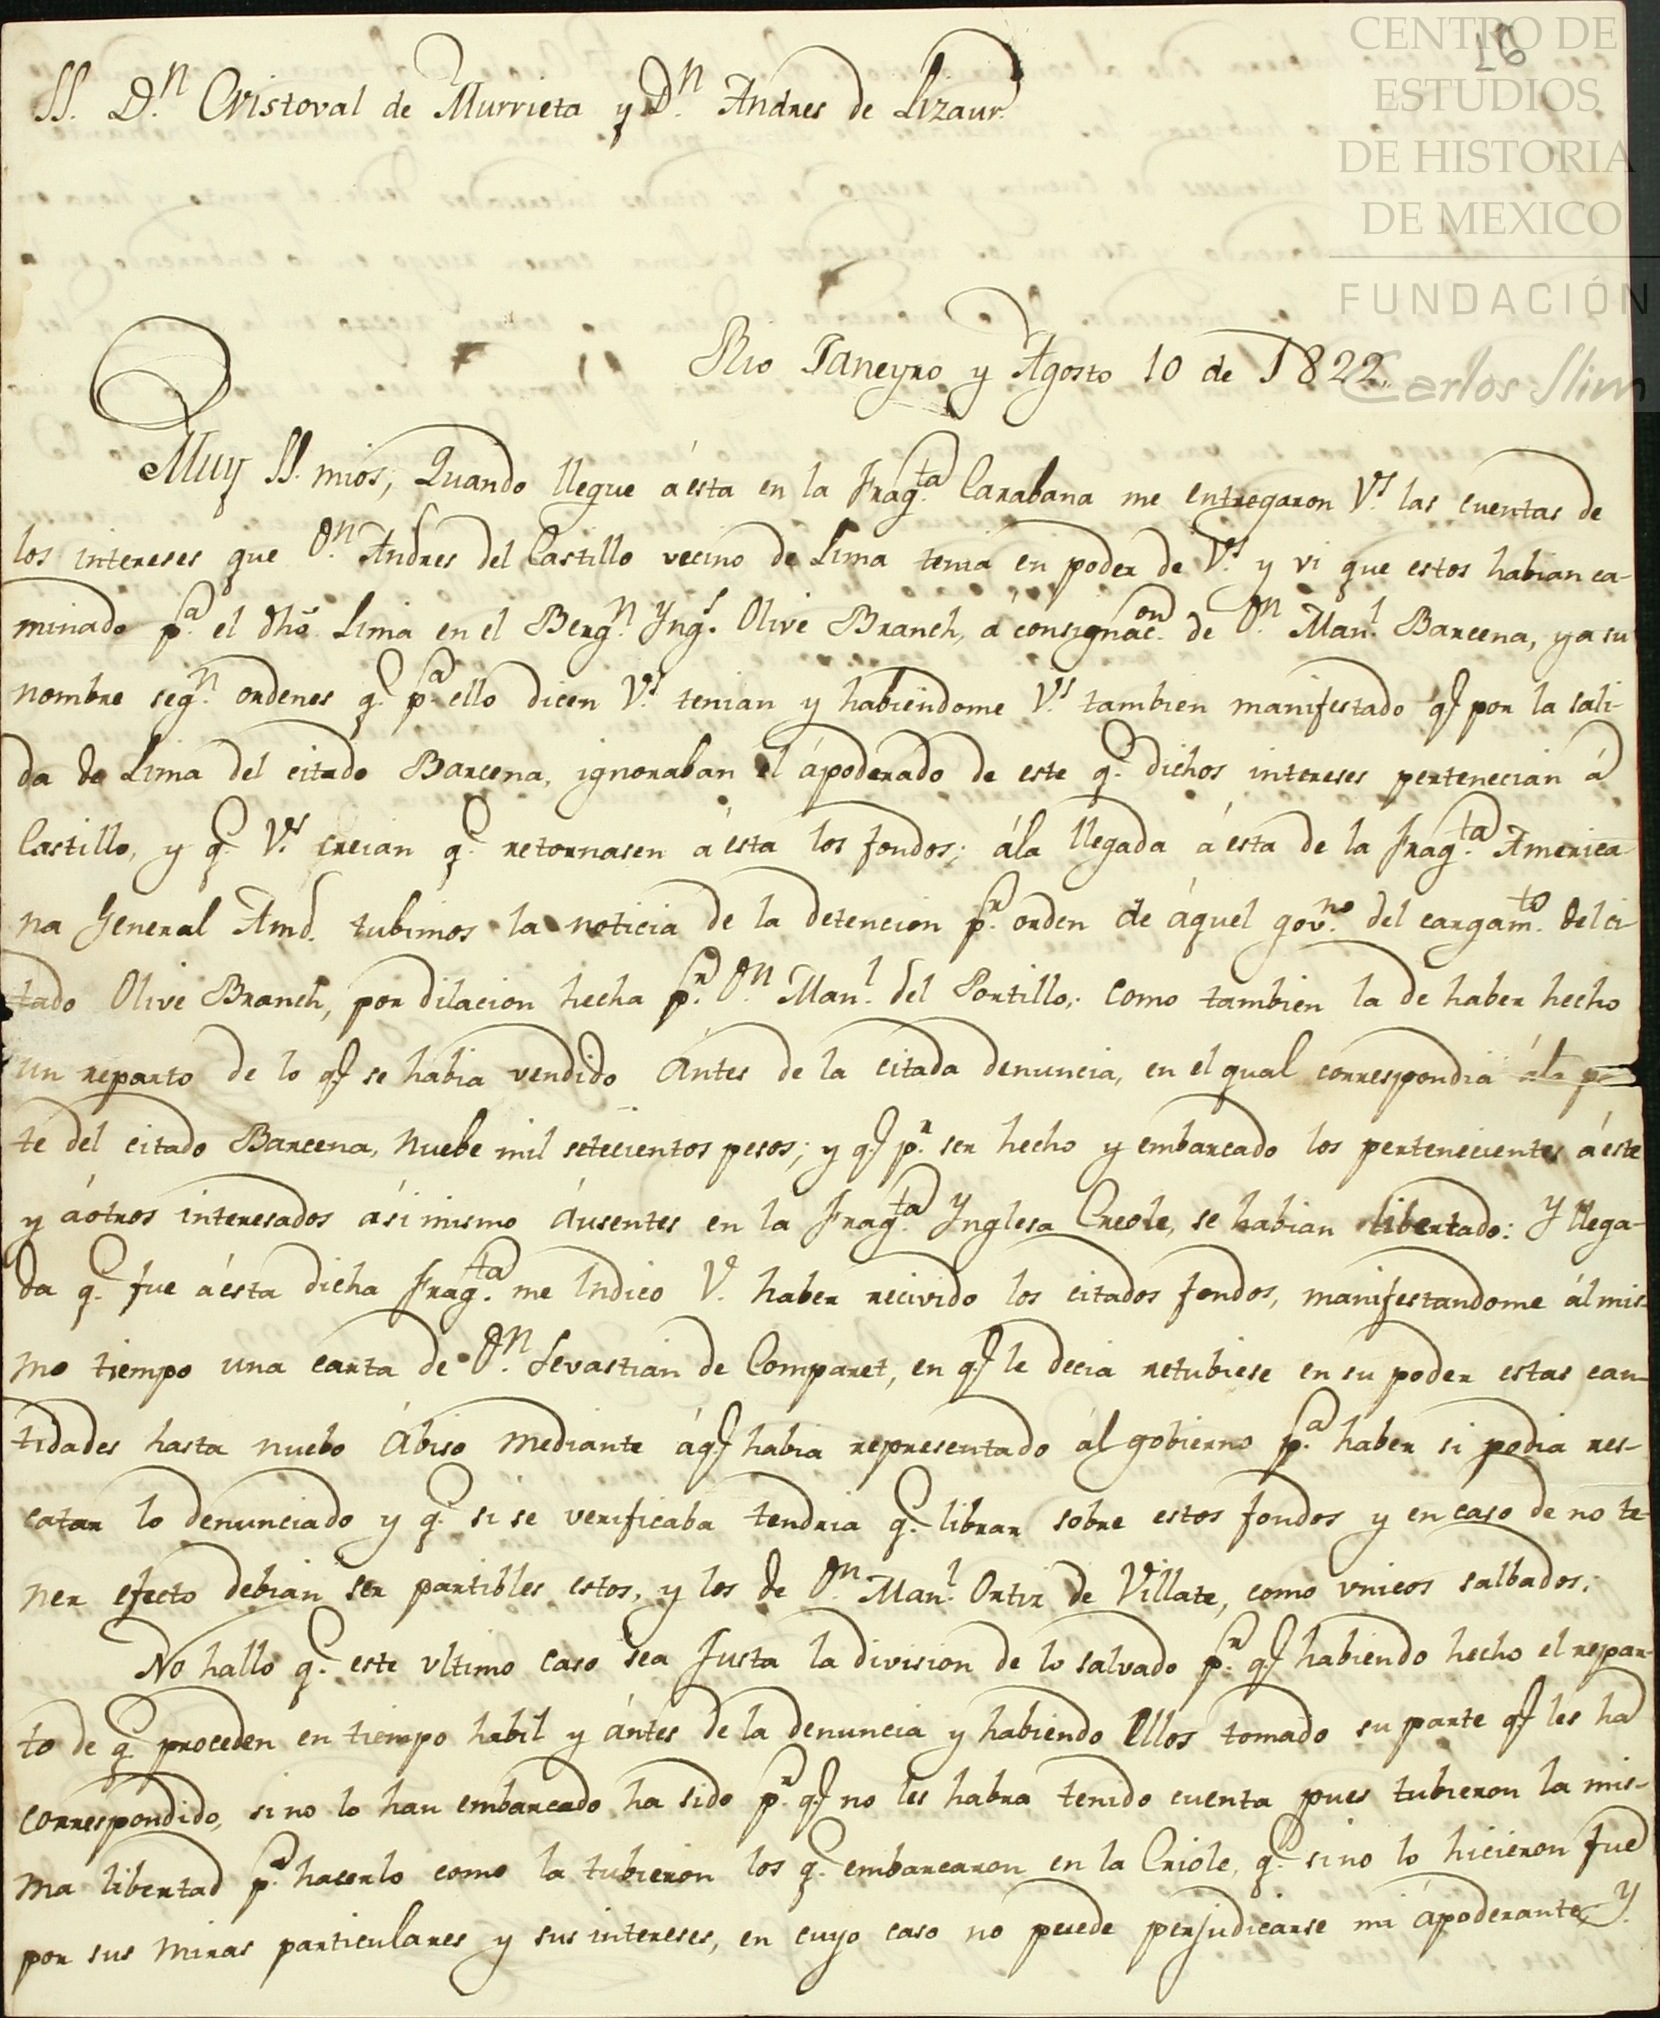 16
CENTRO DE
ESTUDIOS
DE HISTORIA
DE MEXICO
FUNDACIÓN
Carlos Slim
SS. D.n Cristoval de Murrieta y D.n Andres de Lizaur
Rio Janeyro y Agosto 10 de 1822.
Muy SS. mios; Quando llegue á esta en la Frag.ta Carabana me entregaron V.s las cuentas de
los intereses que D.n Andres del Castillo vecino de Lima tenia en poder de V.s y vi que estos habian ca-
minado p.a el dho Lima en el Berg.n Yng.s Olive Branch, á consignac.on de D.n Man.l Barcena, y a su
nombre seg.n ordenes q.e p.a ello dicen V.s tenian y habiendome V.s tambien manifestado q.e por la sali-
da de Lima del citado Barcena, ignoraban el ápoderado de este q.e dichos intereses pertenecian á
Castillo, y q.e V.s creian q.e retornasen á esta los fondos; ála llegada á esta de la Frag.ta America-
na General Amd. tubimos la noticia de la detencion p.r orden de áquel gov.no del cargam.to del ci-
tado Olive Branch, por dilacion hecha p.r D.n Man.l del Portillo; como tambien la de haber hecho
un reparto de lo q.e se habia vendido Ántes de la citada denuncia, en el qual correspondia ála par
te del citado Barcena, nuebe mil setecientos pesos; y q.e p.r ser hecho y embarcado los pertenecientes á este
y áotros interesados ási mismo Áusentes en la Frag.ta Ynglesa Creole, se habian libertado: Y llega-
da q.e fue á esta dicha Frag.ta me Indico V. haber recivido los citados fondos, manifestandome ál mis-
mo tiempo una carta de D.n Sevastian de Comparet, en q.e le decia retubiese en su poder estas can-
tidades hasta nuebo Ábiso mediante á q.e habia representado ál gobierno p.a haber si podia res-
catar lo denunciado y q.e si se verificaba tendria q.e librar sobre estos fondos y en caso de no te-
ner efecto debian ser partibles estos, y los de D.n Man.l Ortiz de Villate, como vnicos salbados.
No hallo q.e este vltimo caso sea Justa la division de lo salvado p.r q.e habiendo hecho el repar-
to de q.e proceden en tiempo habil y ántes de la denuncia y habiendo Ellos tomado su parte q.e les ha
correspondido, si no lo han embarcado ha sido p.r q.e no les habra tenido cuenta pues tubieron la mis-
ma libertad p.a hacerlo como la tubieron los q.e embarcaron en la Criole, q.e si no lo hicieron fue
por sus miras particulares y sus intereses, en cuyo caso no puede perjudicarse mi ápoderante, Y.